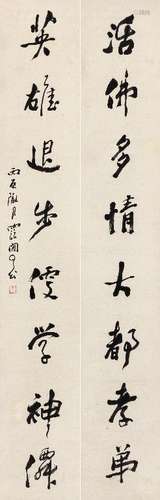 活佛多情大都孝弟
英雄退步便学神僊
丙辰